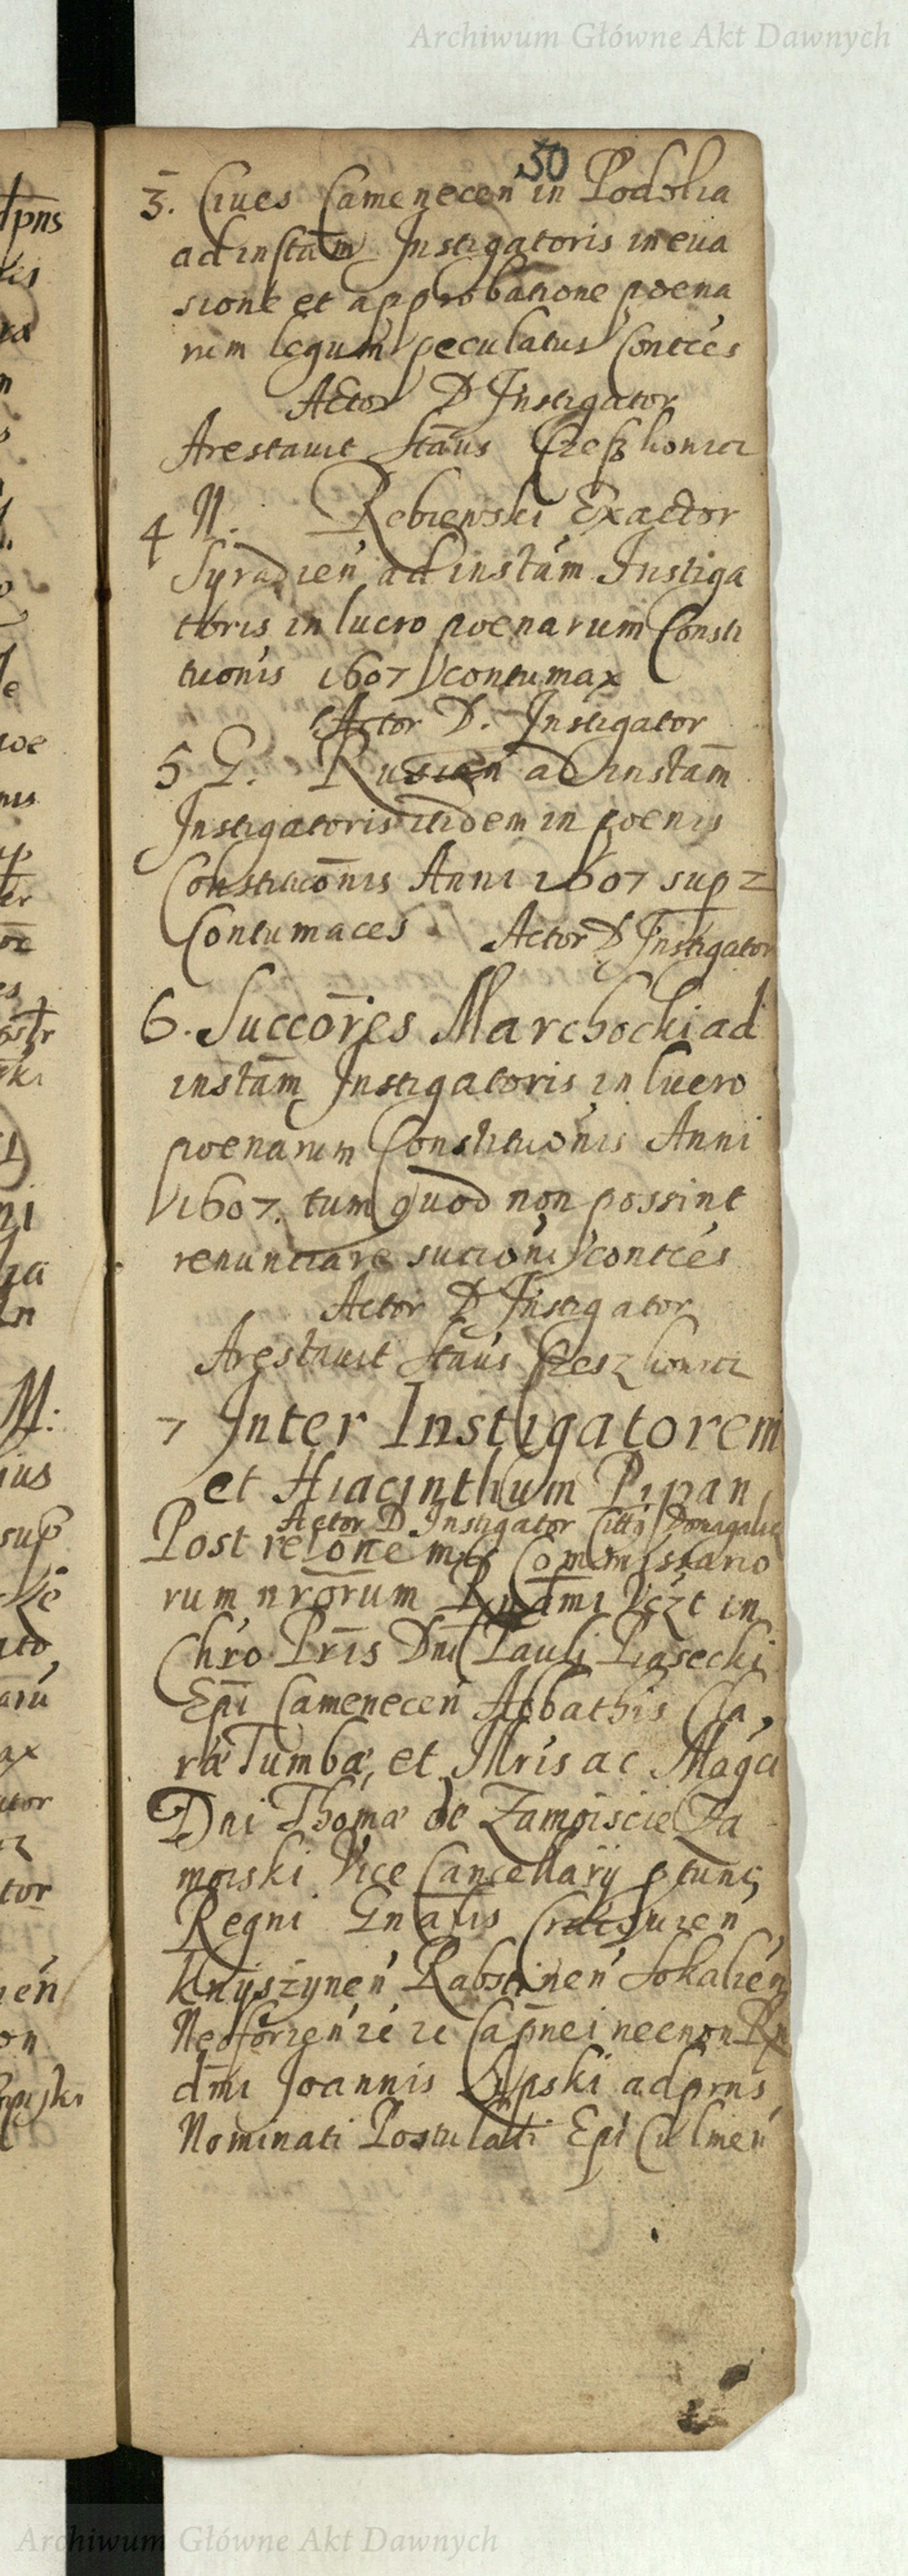 Archiwum Główne Akt Dawnych
50
3. Ciues Camenecen in Podolia
ad instam Instigatoris in eua
sione et approbatione poena
rum legum peculatus Conties
Actor D Instigator
Arestauit Staus
4 N. Rebiewski Exactor
Syradien ad instam Instiga
toris in lucro poenarum Consti
tuonis 1607 contumax
Actor D. Instigator
5 G. Rusian ad instam
Instigatoris itidem in poenis
Constituonis Anni 1607 sup
Contumaces Actor D Instigator
6. Succores Marchocki ad
instam Instigatoris in lucro
poenarum Constituonis Anni
1607. tum quod non possint
renuntiare conties
Actor D Instigator
Arestauit Staus
7 Inter Instigatorem
et Hiacinthum Pipan
Actor D Instigator
Post relone Commissario
rum nrorum in
Chro Pris Dni Pauli Piasecki
Epi Camenecen Abbathis Cla
ræ Tumbæ, et Illris ac Magci
Dni Thomæ de Zamoiscie Za
moiski Vice Cancellarij ptunc
Regni Gnalis
Knijszynen Rabstinen Sokalien
Capnei necnon
dmi Joannis Lipski ad prns
Nominati Postulati Epi Culmen
dpns
M:
ius
sup
ax
tor
Archiwum Główne Akt Dawnych